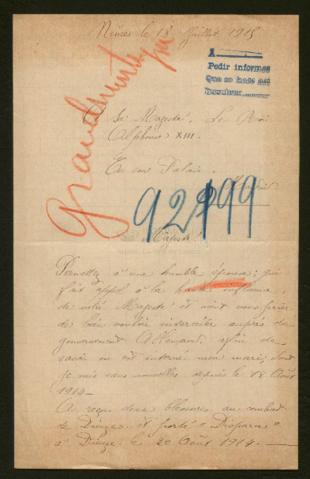 Nîmes le 13 Juillet 1915
A
Pedir informes
Que se haga así
A Sa Majesté Le Roi
Alphonse XIII.
En son Palais
92999
Majesté
Permettez à une humble épouse, qui
fait appel à la haute
de votre Majesté et vient vous prier
de bien vouloir intercéder auprès du
gouvernement Allemand, afin de
savoir où est interné mon mari, dont
je suis sans nouvelles depuis le 18 Août
1914.-
A reçu deux blessures au combat
de Dieuze et porté "Disparu"
à Dieuze le 20 Août 1914.-